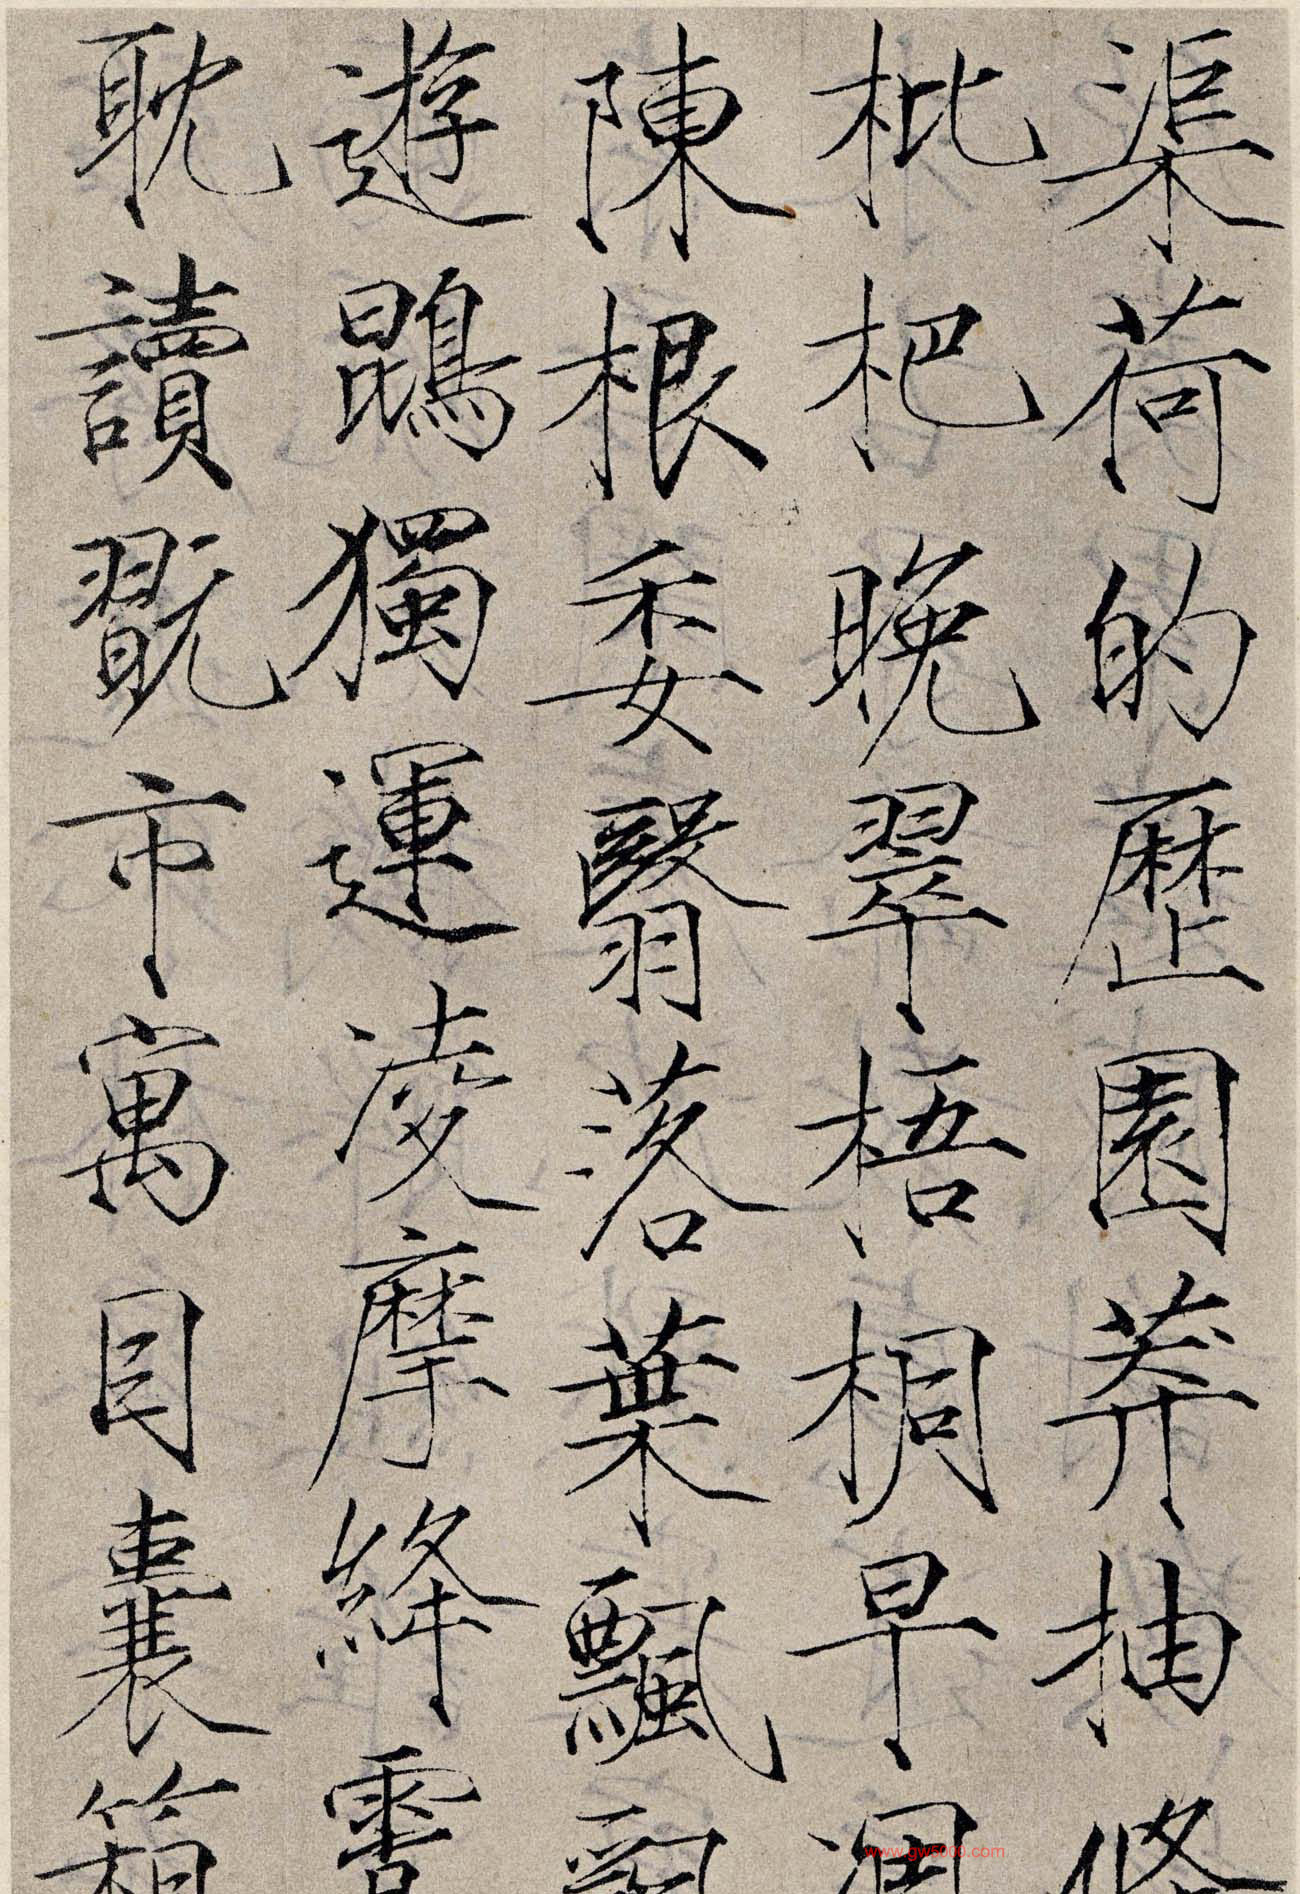 渠荷的歷園莽抽條
枇杷晚翠梧桐早凋
陳根委翳落葉飄颻
遊鵾獨運凌摩絳霄
耽讀翫市寓目囊箱
www.gw5000.com